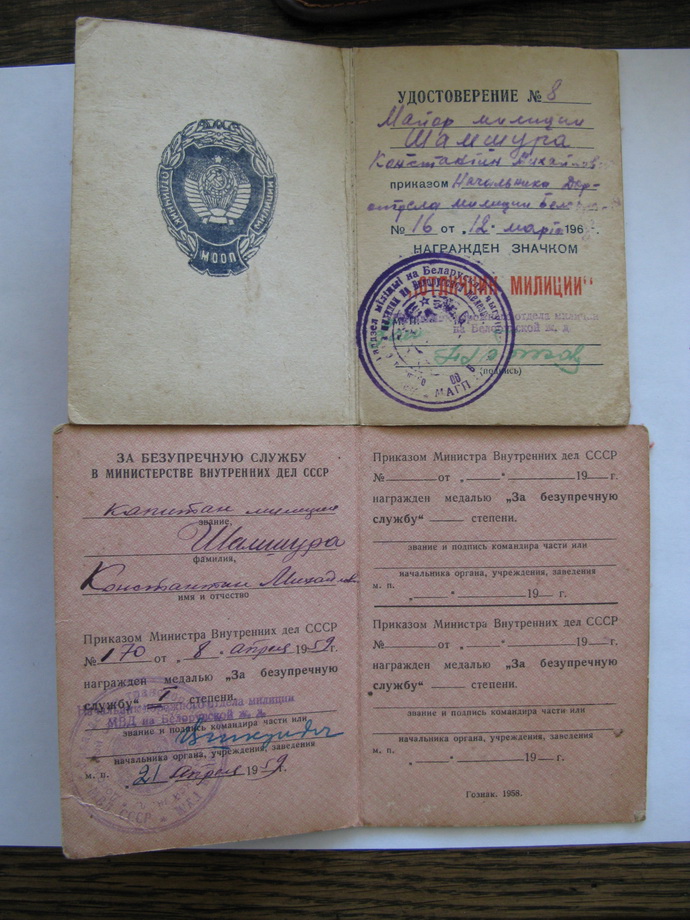 ОТЛИЧНИК МИЛИЦИИ
МООП
УДОСТОВЕРЕНИЕ № 8
Майор милиции
Шамшура
Константин
приказом Начальника Дор-
отдела милиции
№ 16 от „12" марта 196 г.
НАГРАЖДЕН ЗНАЧКОМ
"ОТЛИЧНИК МИЛИЦИИ"
отдела милиции
на Белорусской ж. д.
(подпись)
ЗА БЕЗУПРЕЧНУЮ СЛУЖБУ
В МИНИСТЕРСТВЕ ВНУТРЕННИХ ДЕЛ СССР
капитан милиции
звание,
Шамшура
фамилия,
Константин Михайлович
имя и отчество
Приказом Министра Внутренних дел СССР
№ 170 от „8" апреля 1959 г.
награжден медалью „За безупречную
службу" I степени.
отдела милиции
МВД на Белорусской ж. д.
звание и подпись командира части или
начальника органа, учреждения, заведения
м. п. „21" апреля 1959 г.
Приказом Министра Внутренних дел СССР
№ от „ " 19 г.
награжден медалью „За безупречную
службу" степени.
звание и подпись командира части или
начальника органа, учреждения, заведения
м. п. „ " 19 г.
Приказом Министра Внутренних дел СССР
№ от „ " 19 г.
награжден медалью „За безупречную
службу" степени.
звание и подпись командира части или
начальника органа, учреждения, заведения
м. п. „ " 19 г.
Гознак. 1958.